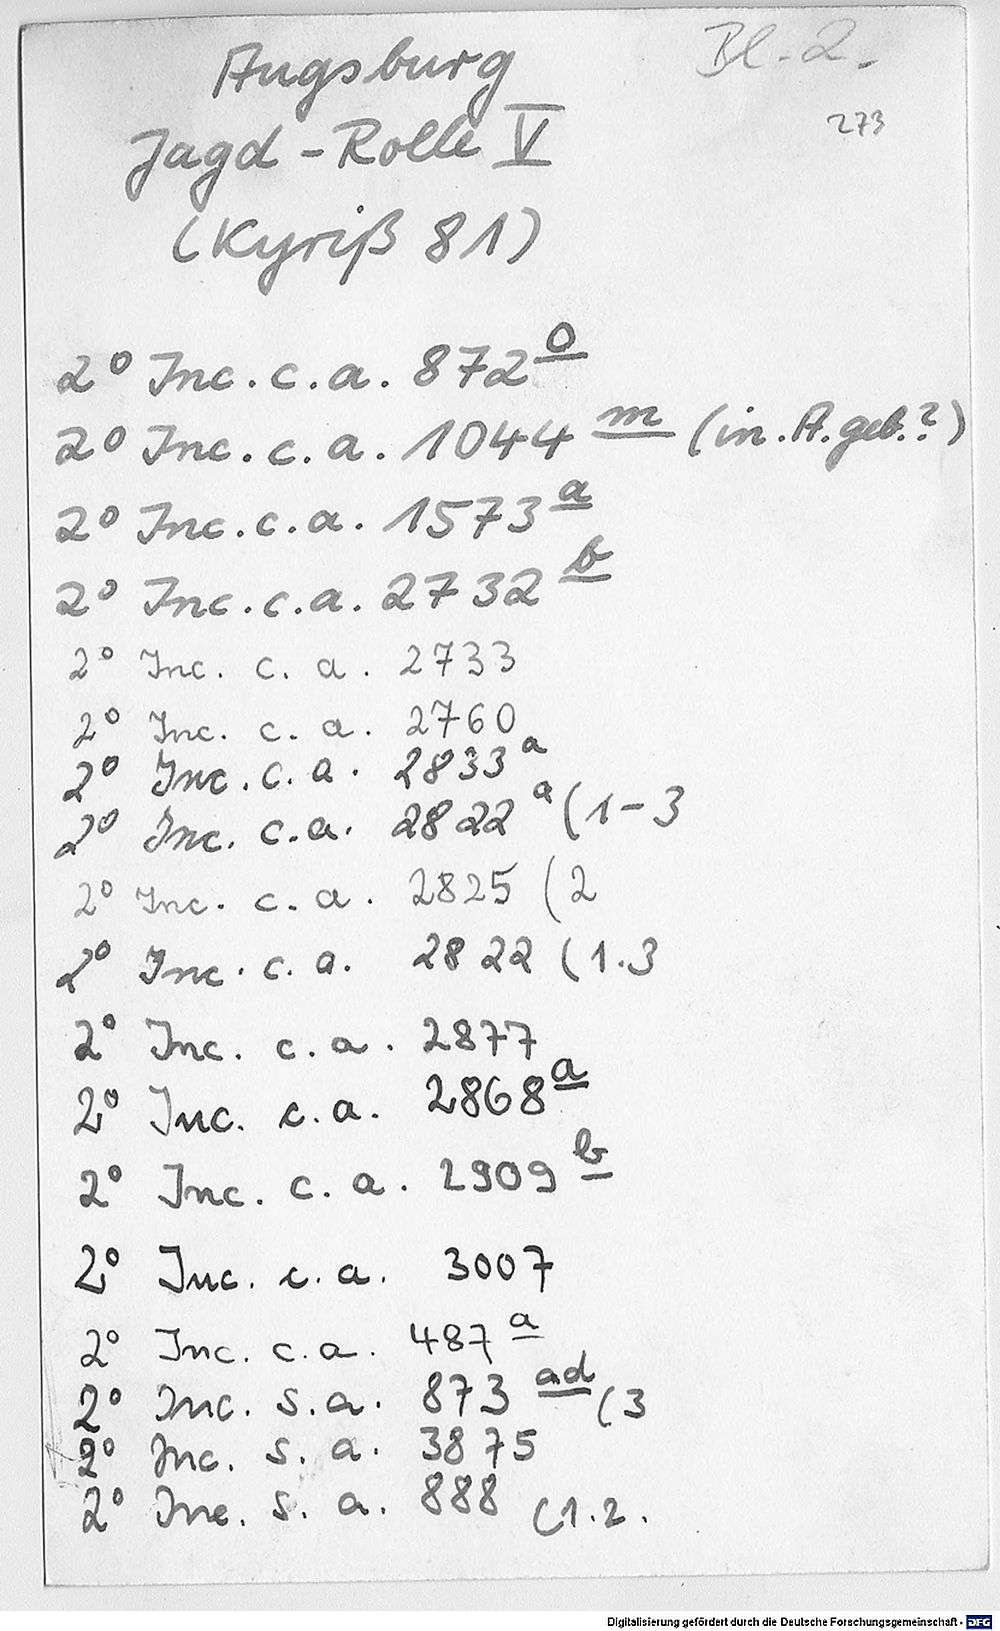 Bl. 2.
Augsburg
273
Jagd-Rolle V
(Kyriß 81)
2° Inc. c. a. 872 o
2° Inc. c. a. 1044 m (in. A. geb.?)
2° Inc. c. a. 1573 a
2° Inc. c. a. 2732 b
2° Inc. c. a. 2733
2° Inc. c. a. 2760
2° Inc. c. a. 2833 a
2° Inc. c. a. 2822 a (1-3
2° Inc. c. a. 2825 (2
2° Inc. c. a. 2822 (1.3
2° Inc. c. a. 2877
2° Inc. c. a. 2868 a
2° Inc. c. a. 2909 b
2° Inc. c. a. 3007
2° Inc. c. a. 487 a
2° Inc. s. a. 873 ad (3
2° Inc. s. a. 3875
2° Inc. s. a. 888 (1.2.
Digitalisierung gefördert durch die Deutsche Forschungsgemeinschaft - DFG